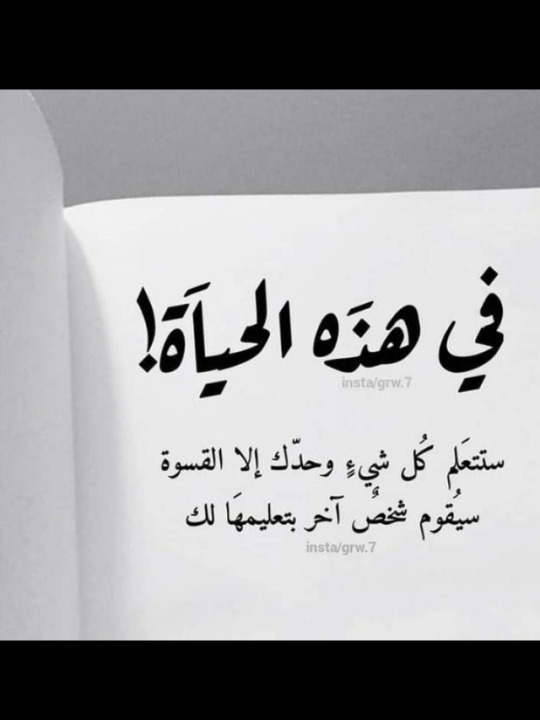 في هذَه الحياَة!
insta/grw.7
ستتعَلم كُل شيءٍ وحدّك إلا القسوة
سيُقوم شخصٌ آخر بتعليمهَا لك
insta/grw.7